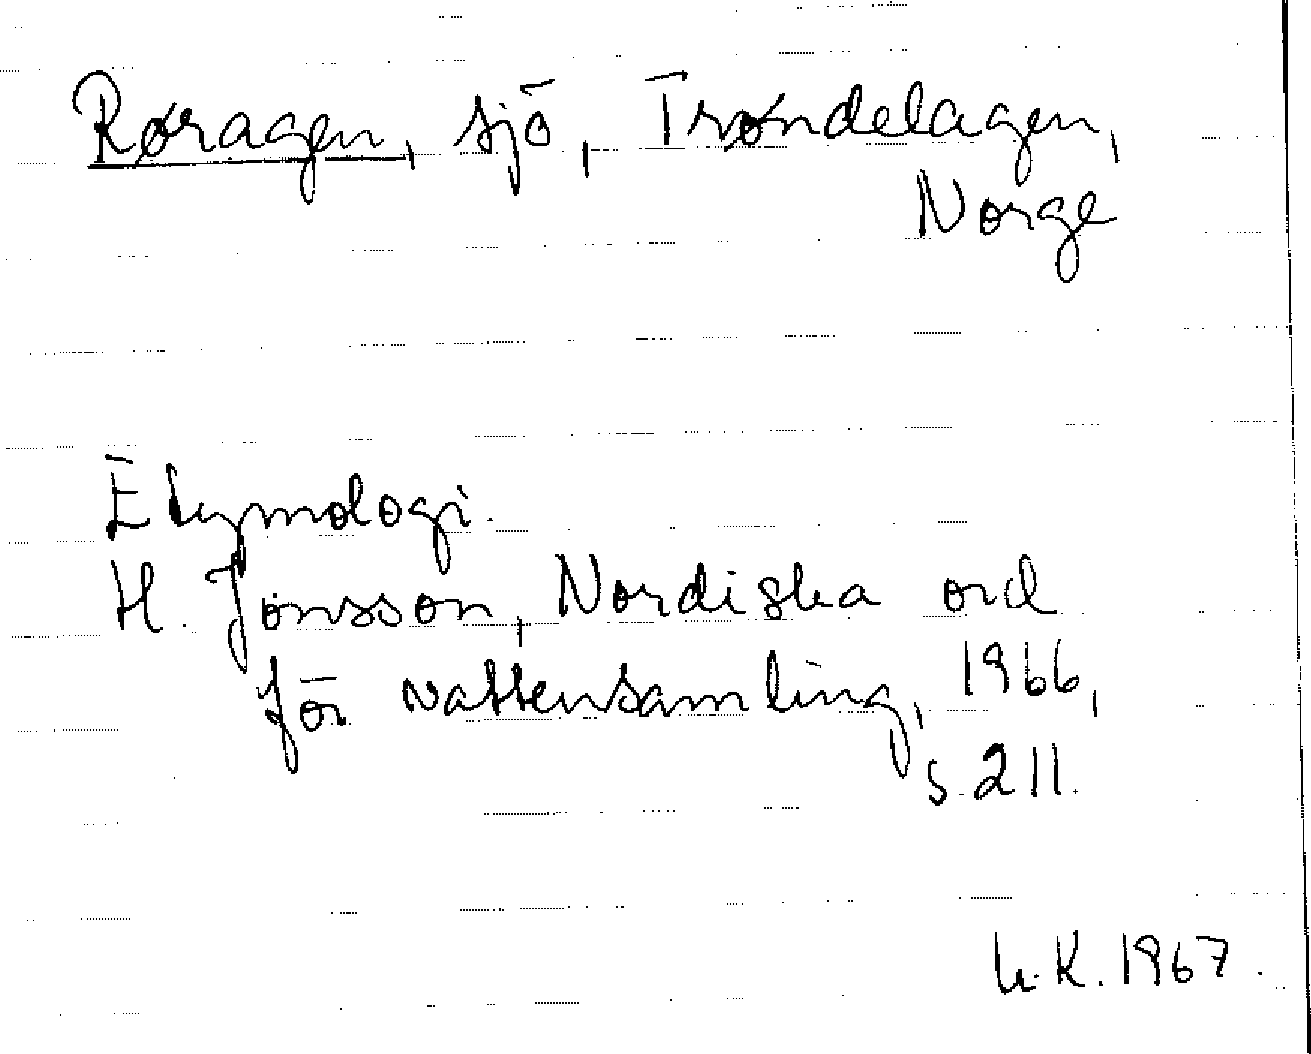 Røragen, sjö, Trøndelagen,
Norge
Etymologi.
H. Jonsson, Nordiska ord
för vattensamling, 1966,
s. 211.
K. 1967.